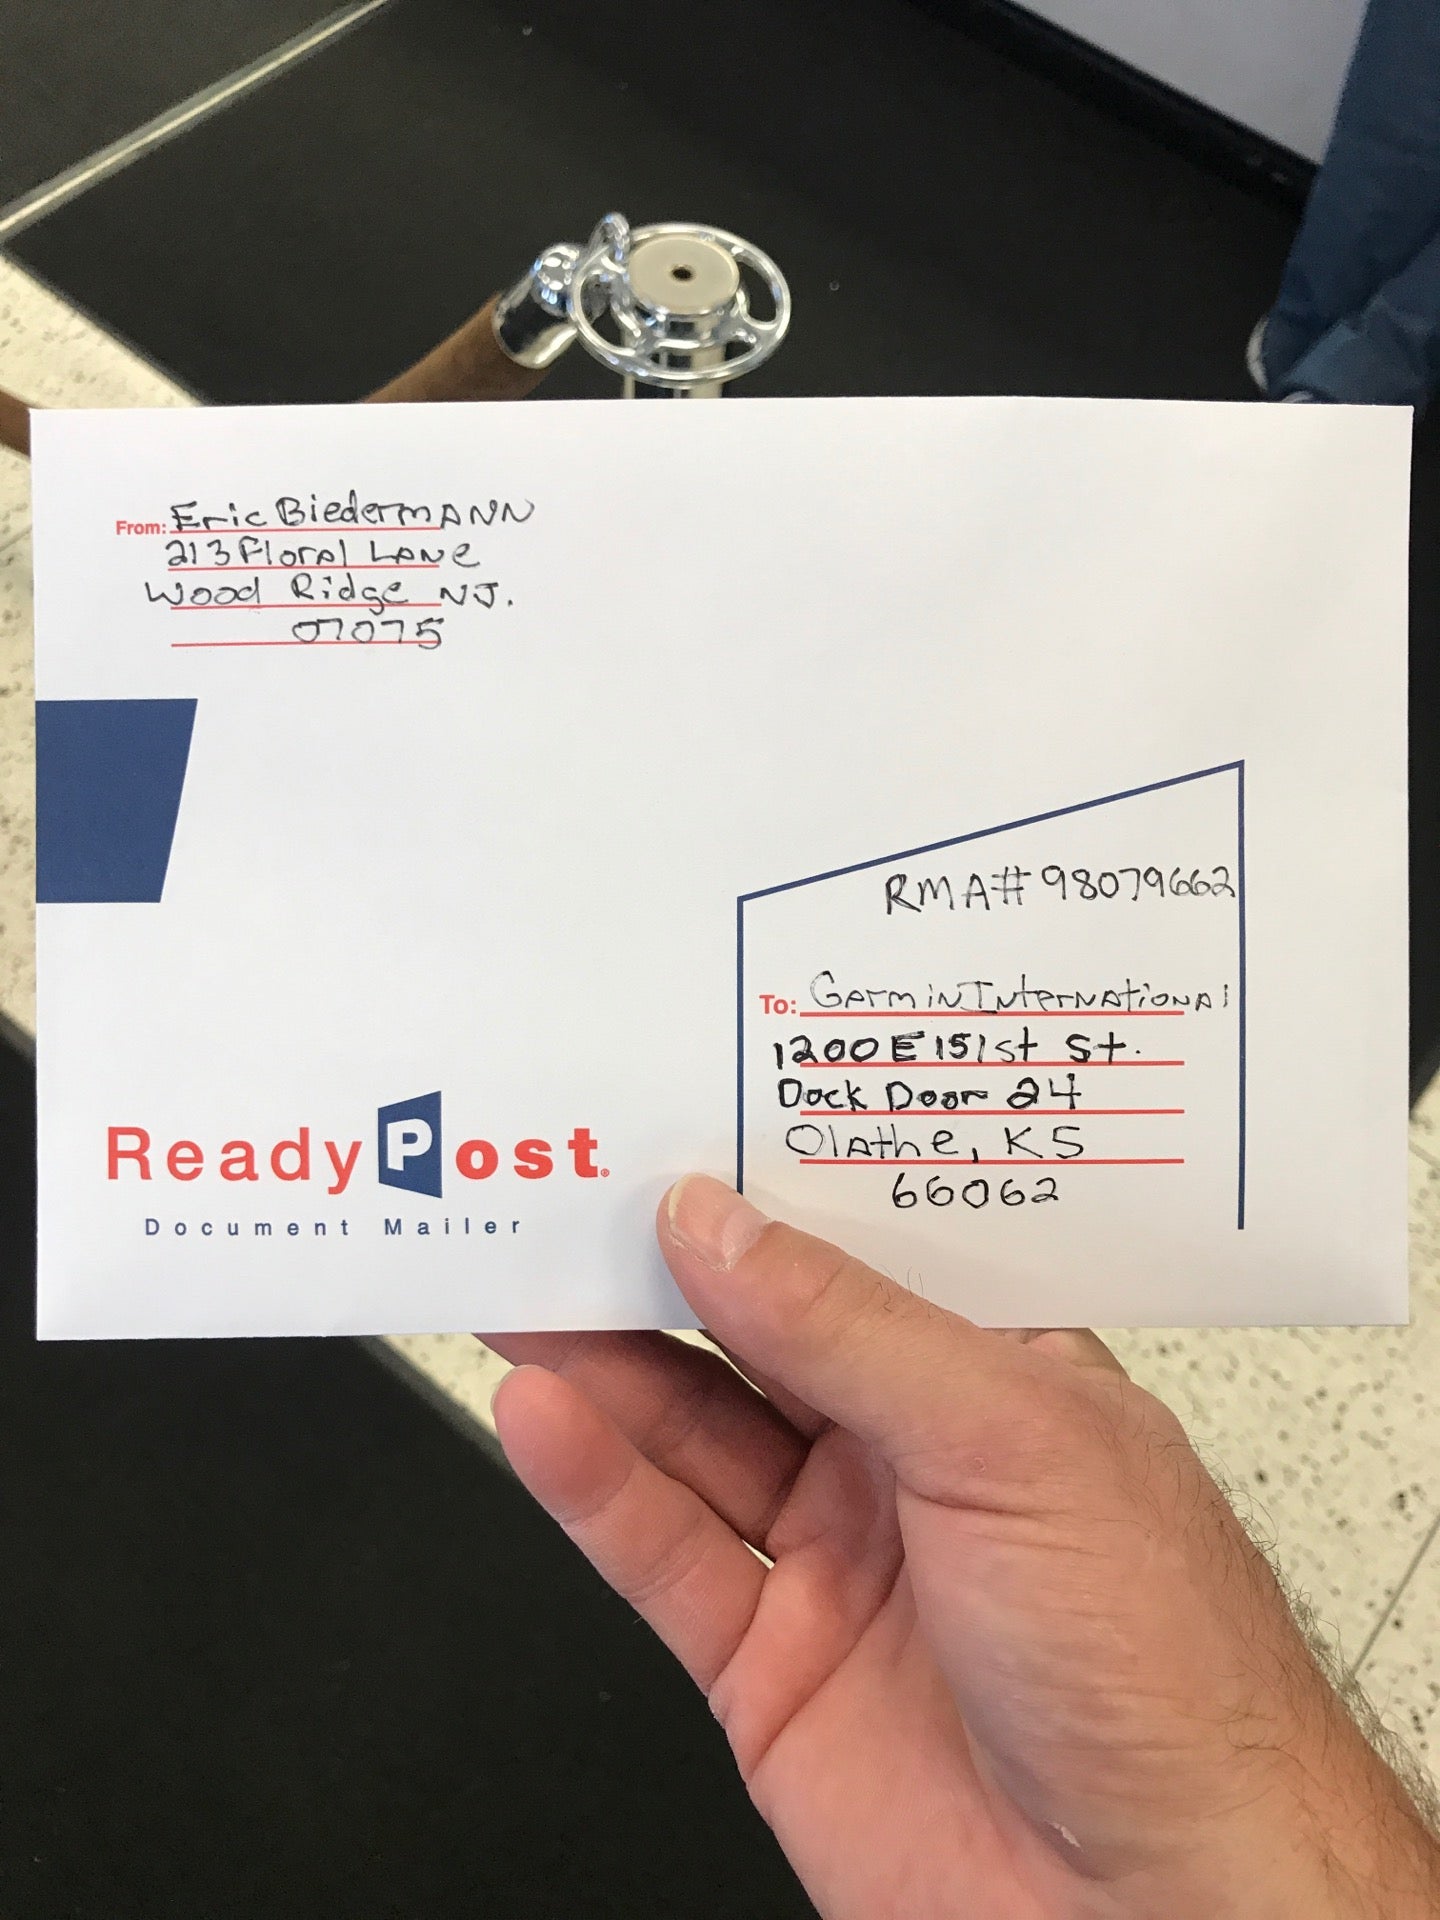 From: Eric Biedermann
213 Floral Lane
Wood Ridge NJ.
07075
RMA# 98079662
To: Garmin International
1200 E 151st St.
Dock Door 24
Olathe, KS
66062
ReadyPost®
Document Mailer